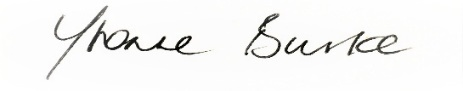 Yvonne Burke